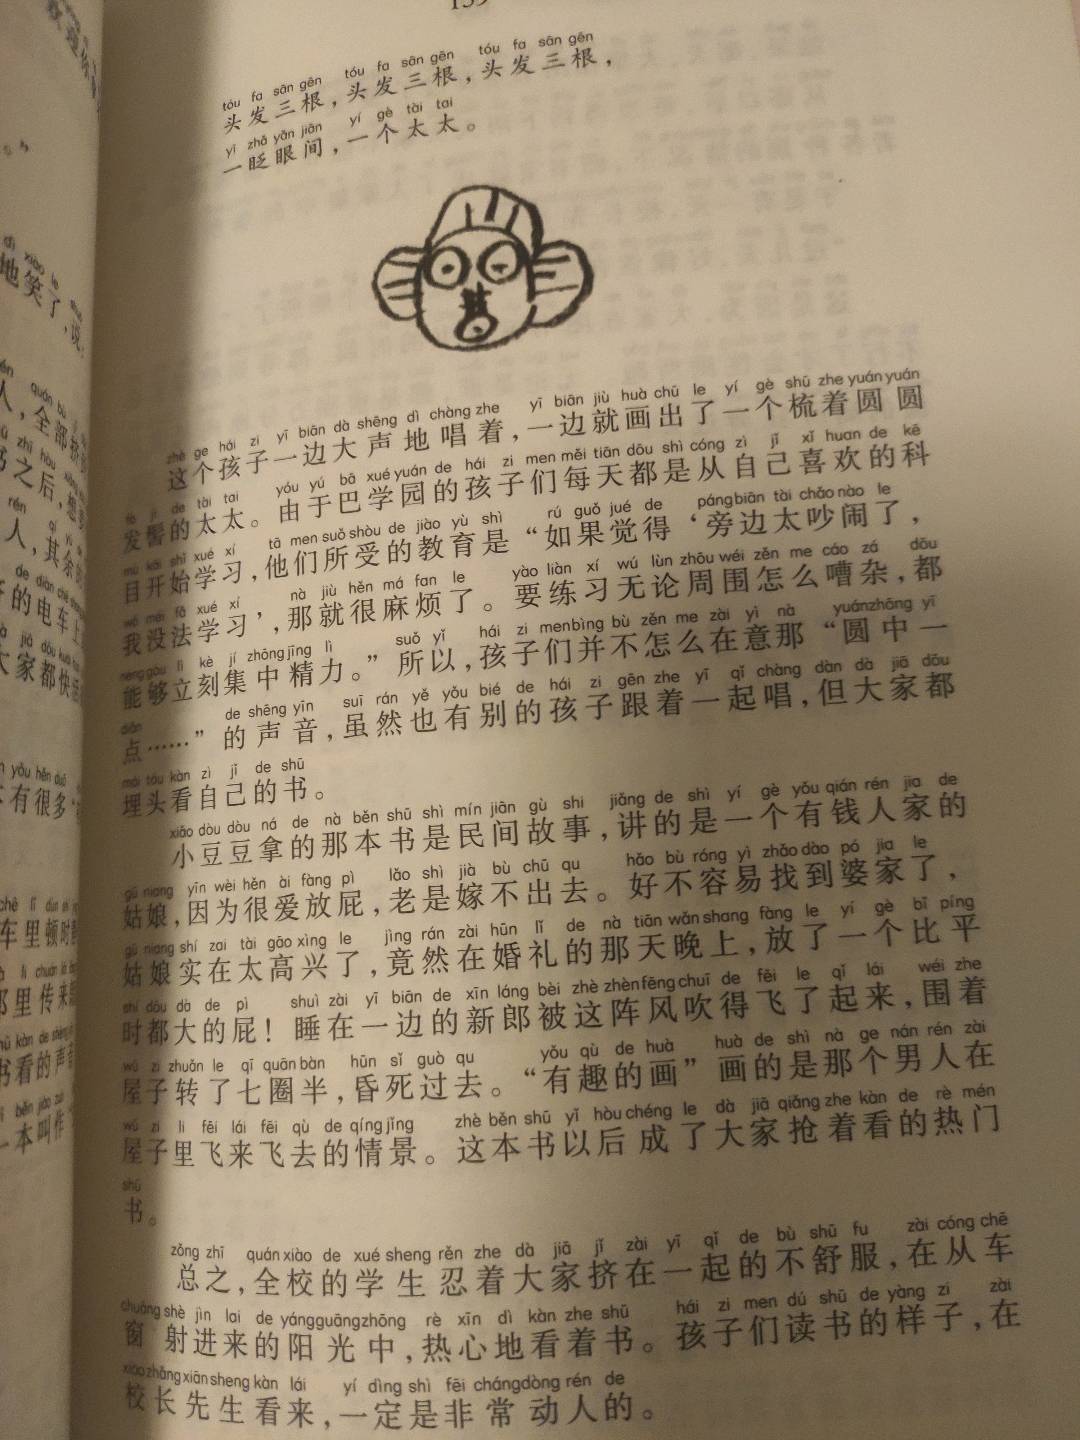 地笑了，说：
人，全部
书之后，想
人，其余
的电车上
大家都快
有很多
车里顿时
那里传来
书看的声音
一本叫作
tóu fa sān gēn tóu fa sān gēn tóu fa sān gēn
头发三根，头发三根，头发三根，
yì zhǎ yǎn jiān yí gè tài tai
一眨眼间，一个太太。
zhè ge hái zi yī biān dà shēng dì chàng zhe yī biān jiù huà chū le yí gè shū zhe yuán yuán
这个孩子一边大声地唱着，一边就画出了一个梳着圆圆
fà jì de tài tai yóu yú bā xué yuán de hái zi men měi tiān dōu shì cóng zì jǐ xǐ huan de kē
发髻的太太。由于巴学园的孩子们每天都是从自己喜欢的科
mù kāi shǐ xué xí tā men suǒ shòu de jiào yù shì rú guǒ jué de páng biān tài chǎo nào le
目开始学习，他们所受的教育是“如果觉得‘旁边太吵闹了，
wǒ méi fǎ xué xí nà jiù hěn má fan le yào liàn xí wú lùn zhōu wéi zěn me cáo zá dōu
我没法学习’，那就很麻烦了。要练习无论周围怎么嘈杂，都
néng gòu lì kè jí zhōng jīng lì suǒ yǐ hái zi men bìng bù zěn me zài yì nà yuán zhōng yī
能够立刻集中精力。”所以，孩子们并不怎么在意那“圆中一
diǎn de shēng yīn suī rán yě yǒu bié de hái zi gēn zhe yī qǐ chàng dàn dà jiā dōu
点……”的声音，虽然也有别的孩子跟着一起唱，但大家都
mái tóu kàn zì jǐ de shū
埋头看自己的书。
xiǎo dòu dòu ná de nà běn shū shì mín jiān gù shi jiǎng de shì yí gè yǒu qián rén jia de
小豆豆拿的那本书是民间故事，讲的是一个有钱人家的
gū niang yīn wèi hěn ài fàng pì lǎo shì jià bù chū qu hǎo bù róng yì zhǎo dào pó jia le
姑娘，因为很爱放屁，老是嫁不出去。好不容易找到婆家了，
gū niang shí zai tài gāo xìng le jìng rán zài hūn lǐ de nà tiān wǎn shang fàng le yí gè bǐ píng
姑娘实在太高兴了，竟然在婚礼的那天晚上，放了一个比平
shí dōu dà de pì shuì zài yī biān de xīn láng bèi zhè zhèn fēng chuī de fēi le qǐ lái wéi zhe
时都大的屁！睡在一边的新郎被这阵风吹得飞了起来，围着
wū zi zhuǎn le qī quān bàn hūn sǐ guò qu yǒu qù de huà huà de shì nà ge nán rén zài
屋子转了七圈半，昏死过去。“有趣的画”画的是那个男人在
wū zi li fēi lái fēi qù de qíng jǐng zhè běn shū yǐ hòu chéng le dà jiā qiǎng zhe kàn de rè mén
屋子里飞来飞去的情景。这本书以后成了大家抢着看的热门
shū
书。
zǒng zhī quán xiào de xué sheng rěn zhe dà jiā jǐ zài yī qǐ de bù shū fu zài cóng chē
总之，全校的学生忍着大家挤在一起的不舒服，在从车
chuāng shè jìn lai de yáng guāng zhōng rè xīn dì kàn zhe shū hái zi men dú shū de yàng zi zài
窗射进来的阳光中，热心地看着书。孩子们读书的样子，在
xiào zhǎng xiān sheng kàn lái yí dìng shì fēi cháng dòng rén de
校长先生看来，一定是非常动人的。